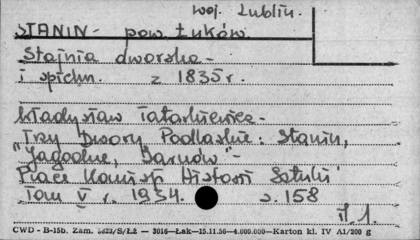 woj. Lublin.
STANIN - pow. Łuków.
Stajnia dworska -
i spichn. z 1835 r.
Władysław Tatarkiewicz -
Trzy Dwory Podlaskie: Stanin,
"Jagodne, Jarnów" -
Prace Komisji Historii Sztuki
Tom V r. 1934. s. 158
il. 1.
CWD - B-15b. Zam. 5823/S/Łż — 3016—Łak—15.11.56—4.000.000—Karton kl. IV A1/200 g